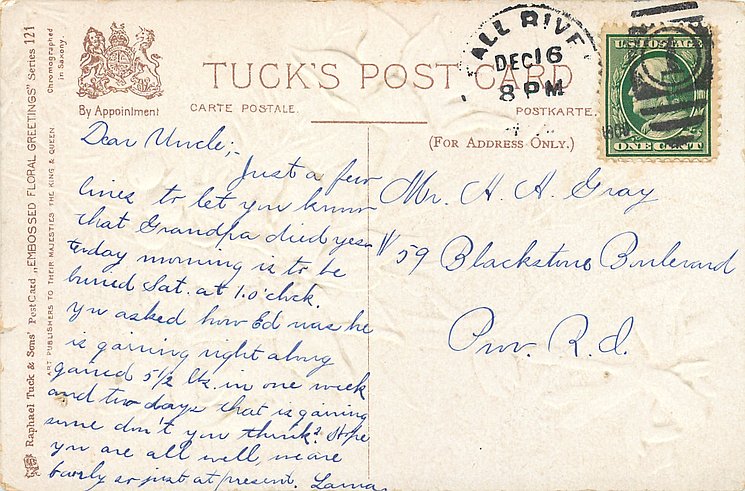 TUCK'S POST CARD
By Appointment
CARTE POSTALE.
POSTKARTE.
(FOR ADDRESS ONLY.)
ALL RIVE
DEC 16
8 PM
U.S. POSTAGE
ONE CENT
Raphael Tuck & Sons' Post Card „EMBOSSED FLORAL GREETINGS" Series 121
Chromographed
in Saxony.
ART PUBLISHERS TO THEIR MAJESTIES THE KING & QUEEN
Dear Uncle;-
Just a few
lines to let you know
that Grandpa died yes-
terday morning is to be
buried Sat. at 1.o'clock.
You asked how Ed was he
is gaining right along
gained 5 1/2 lbs. in one week
and two days that is gaining
some don't you think? Hope
you are all well, we are
fairly so just at present.
Mr. H. H. Gray
# 59 Blackstone Boulevard
Prov. R.I.